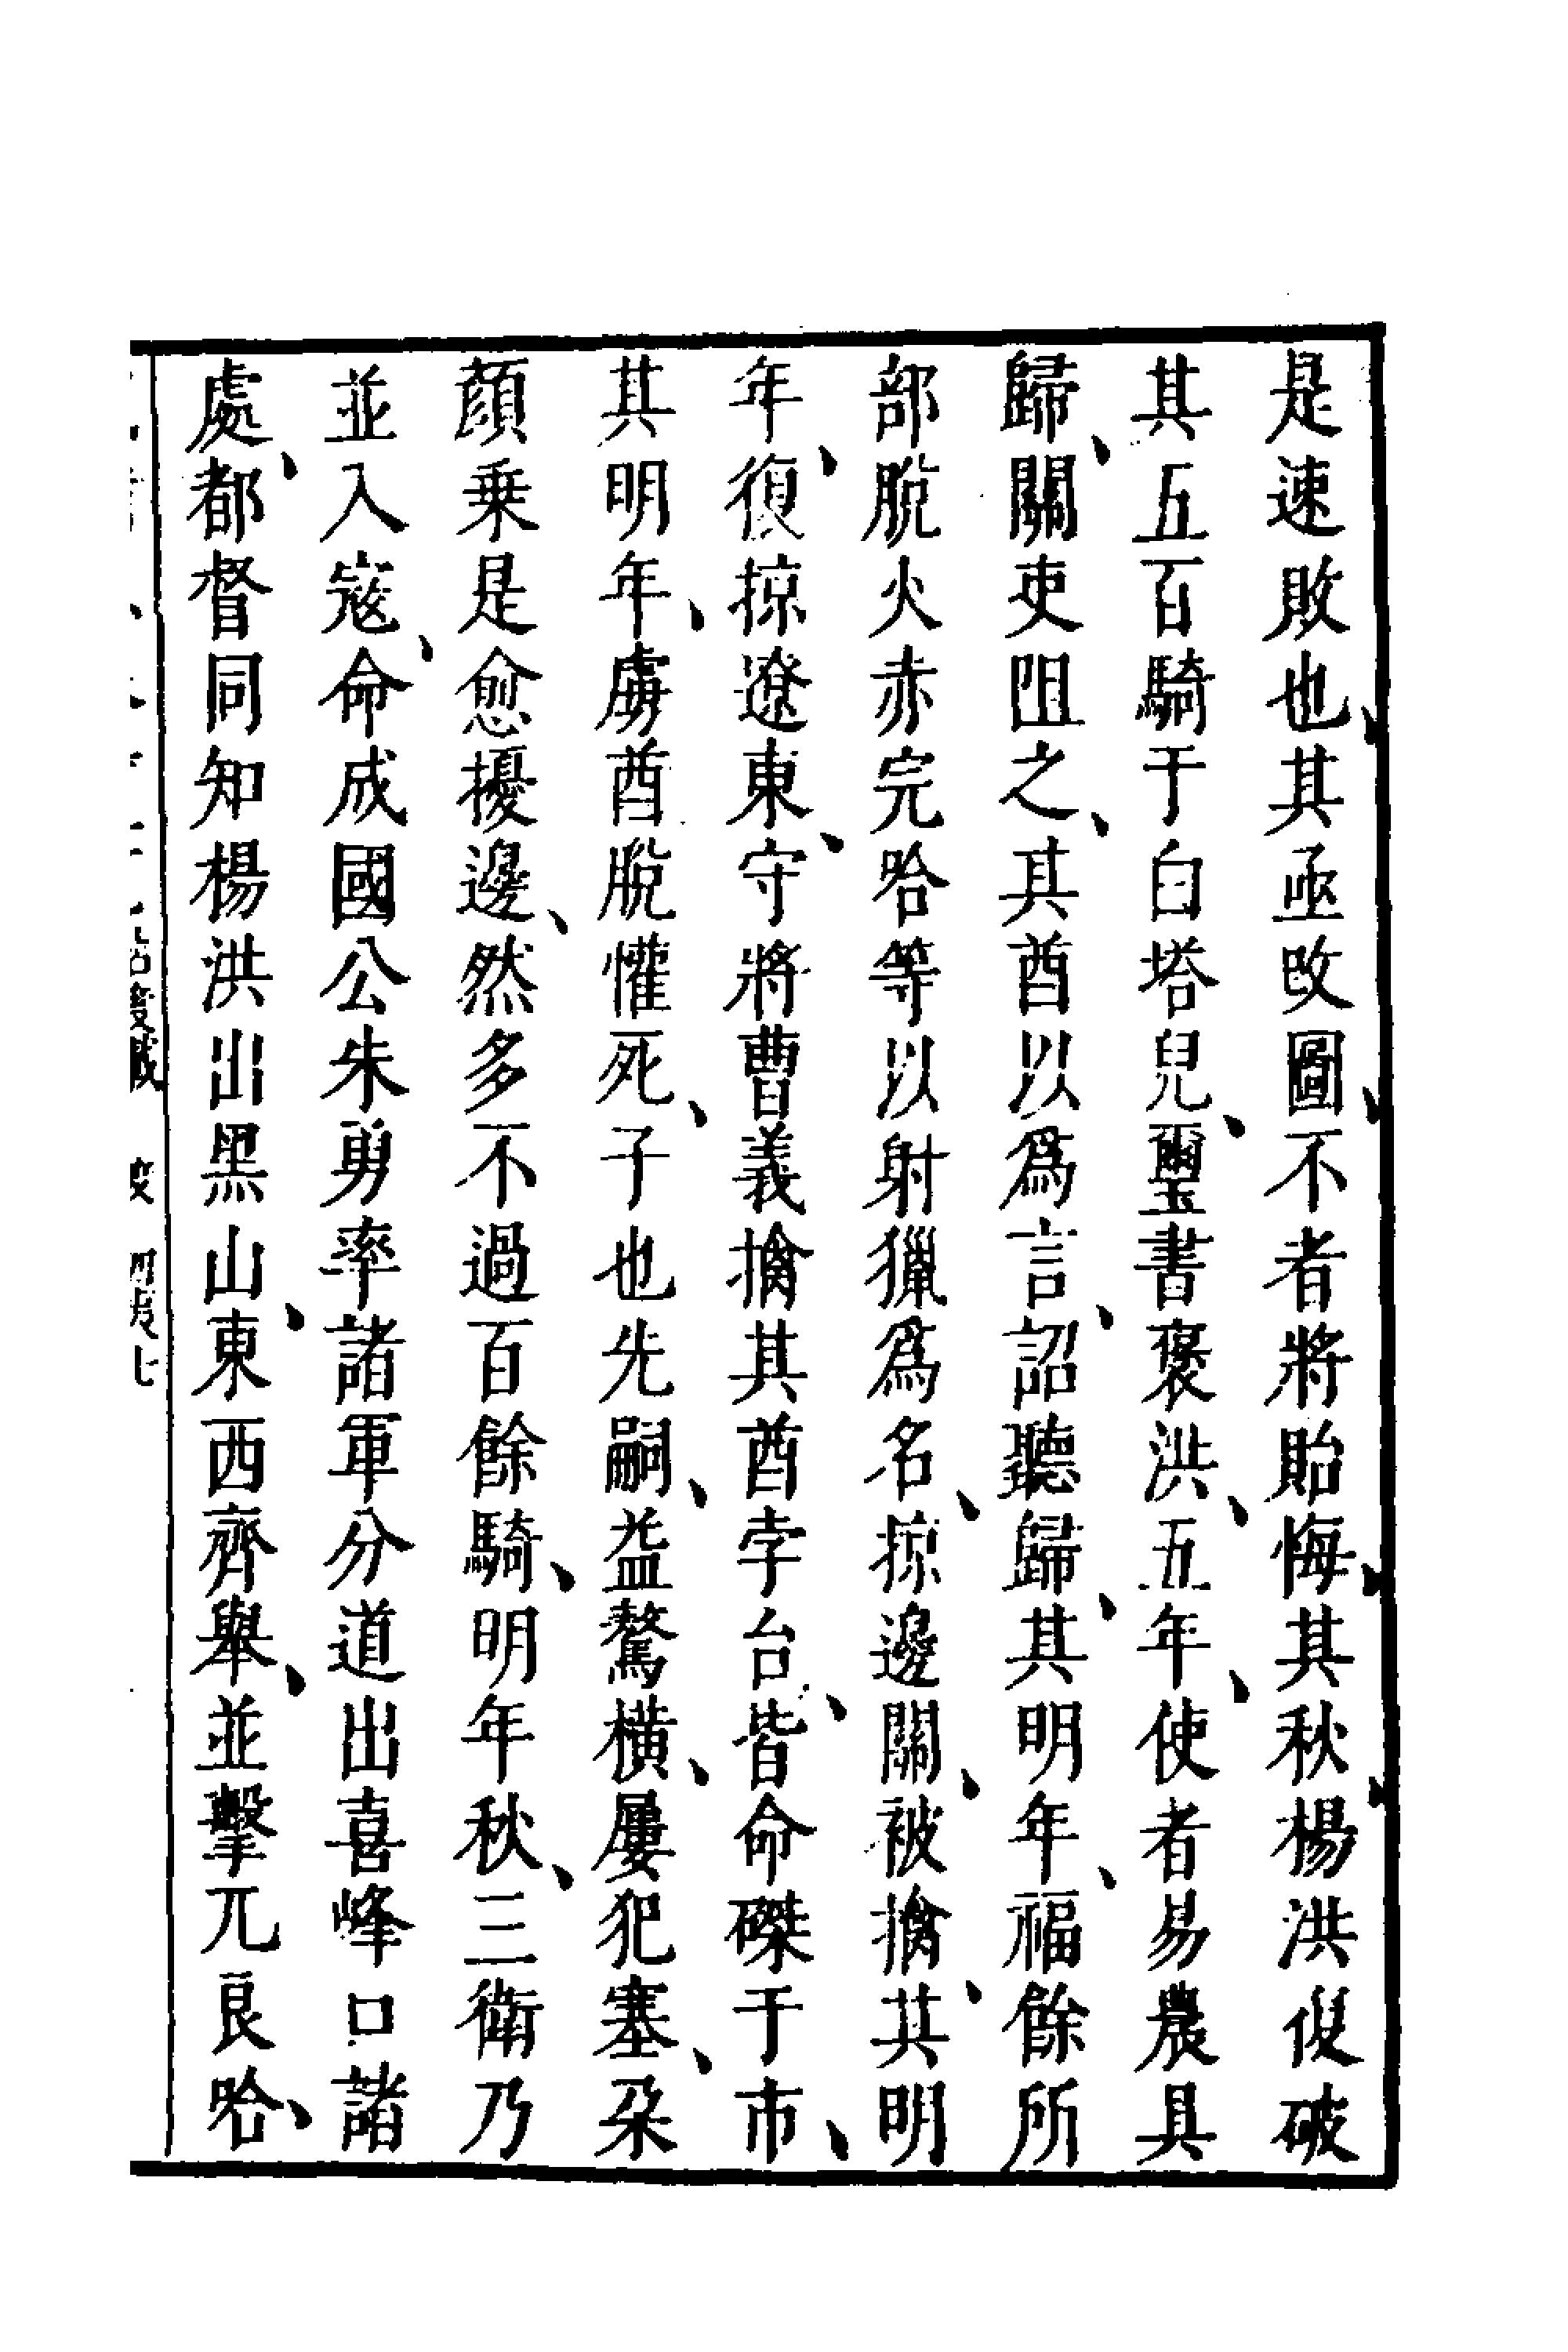 是速敗也、其亟改圖、不者將貽悔、其秋、楊洪復破
其五百騎于白塔兒、璽書褒洪、五年、使者易農具
歸、關吏阻之、其酋以爲言、詔聽歸、其明年、福餘所
部脫火赤完哈等以射獵爲名、掠邊關、被擒、其明
年、復掠遼東、守將曹義擒其酋孛台、皆命磔于市、
其明年、虜酋脫懽死、子也先嗣、益驁橫、屢犯塞、朶
顏乗是愈擾邊、然多不過百餘騎、明年秋、三衛乃
並入寇、命成國公朱勇率諸軍分道出喜峰口諸
處、都督同知楊洪出黑山、東西齊舉、並擊兀良哈、
四夷七